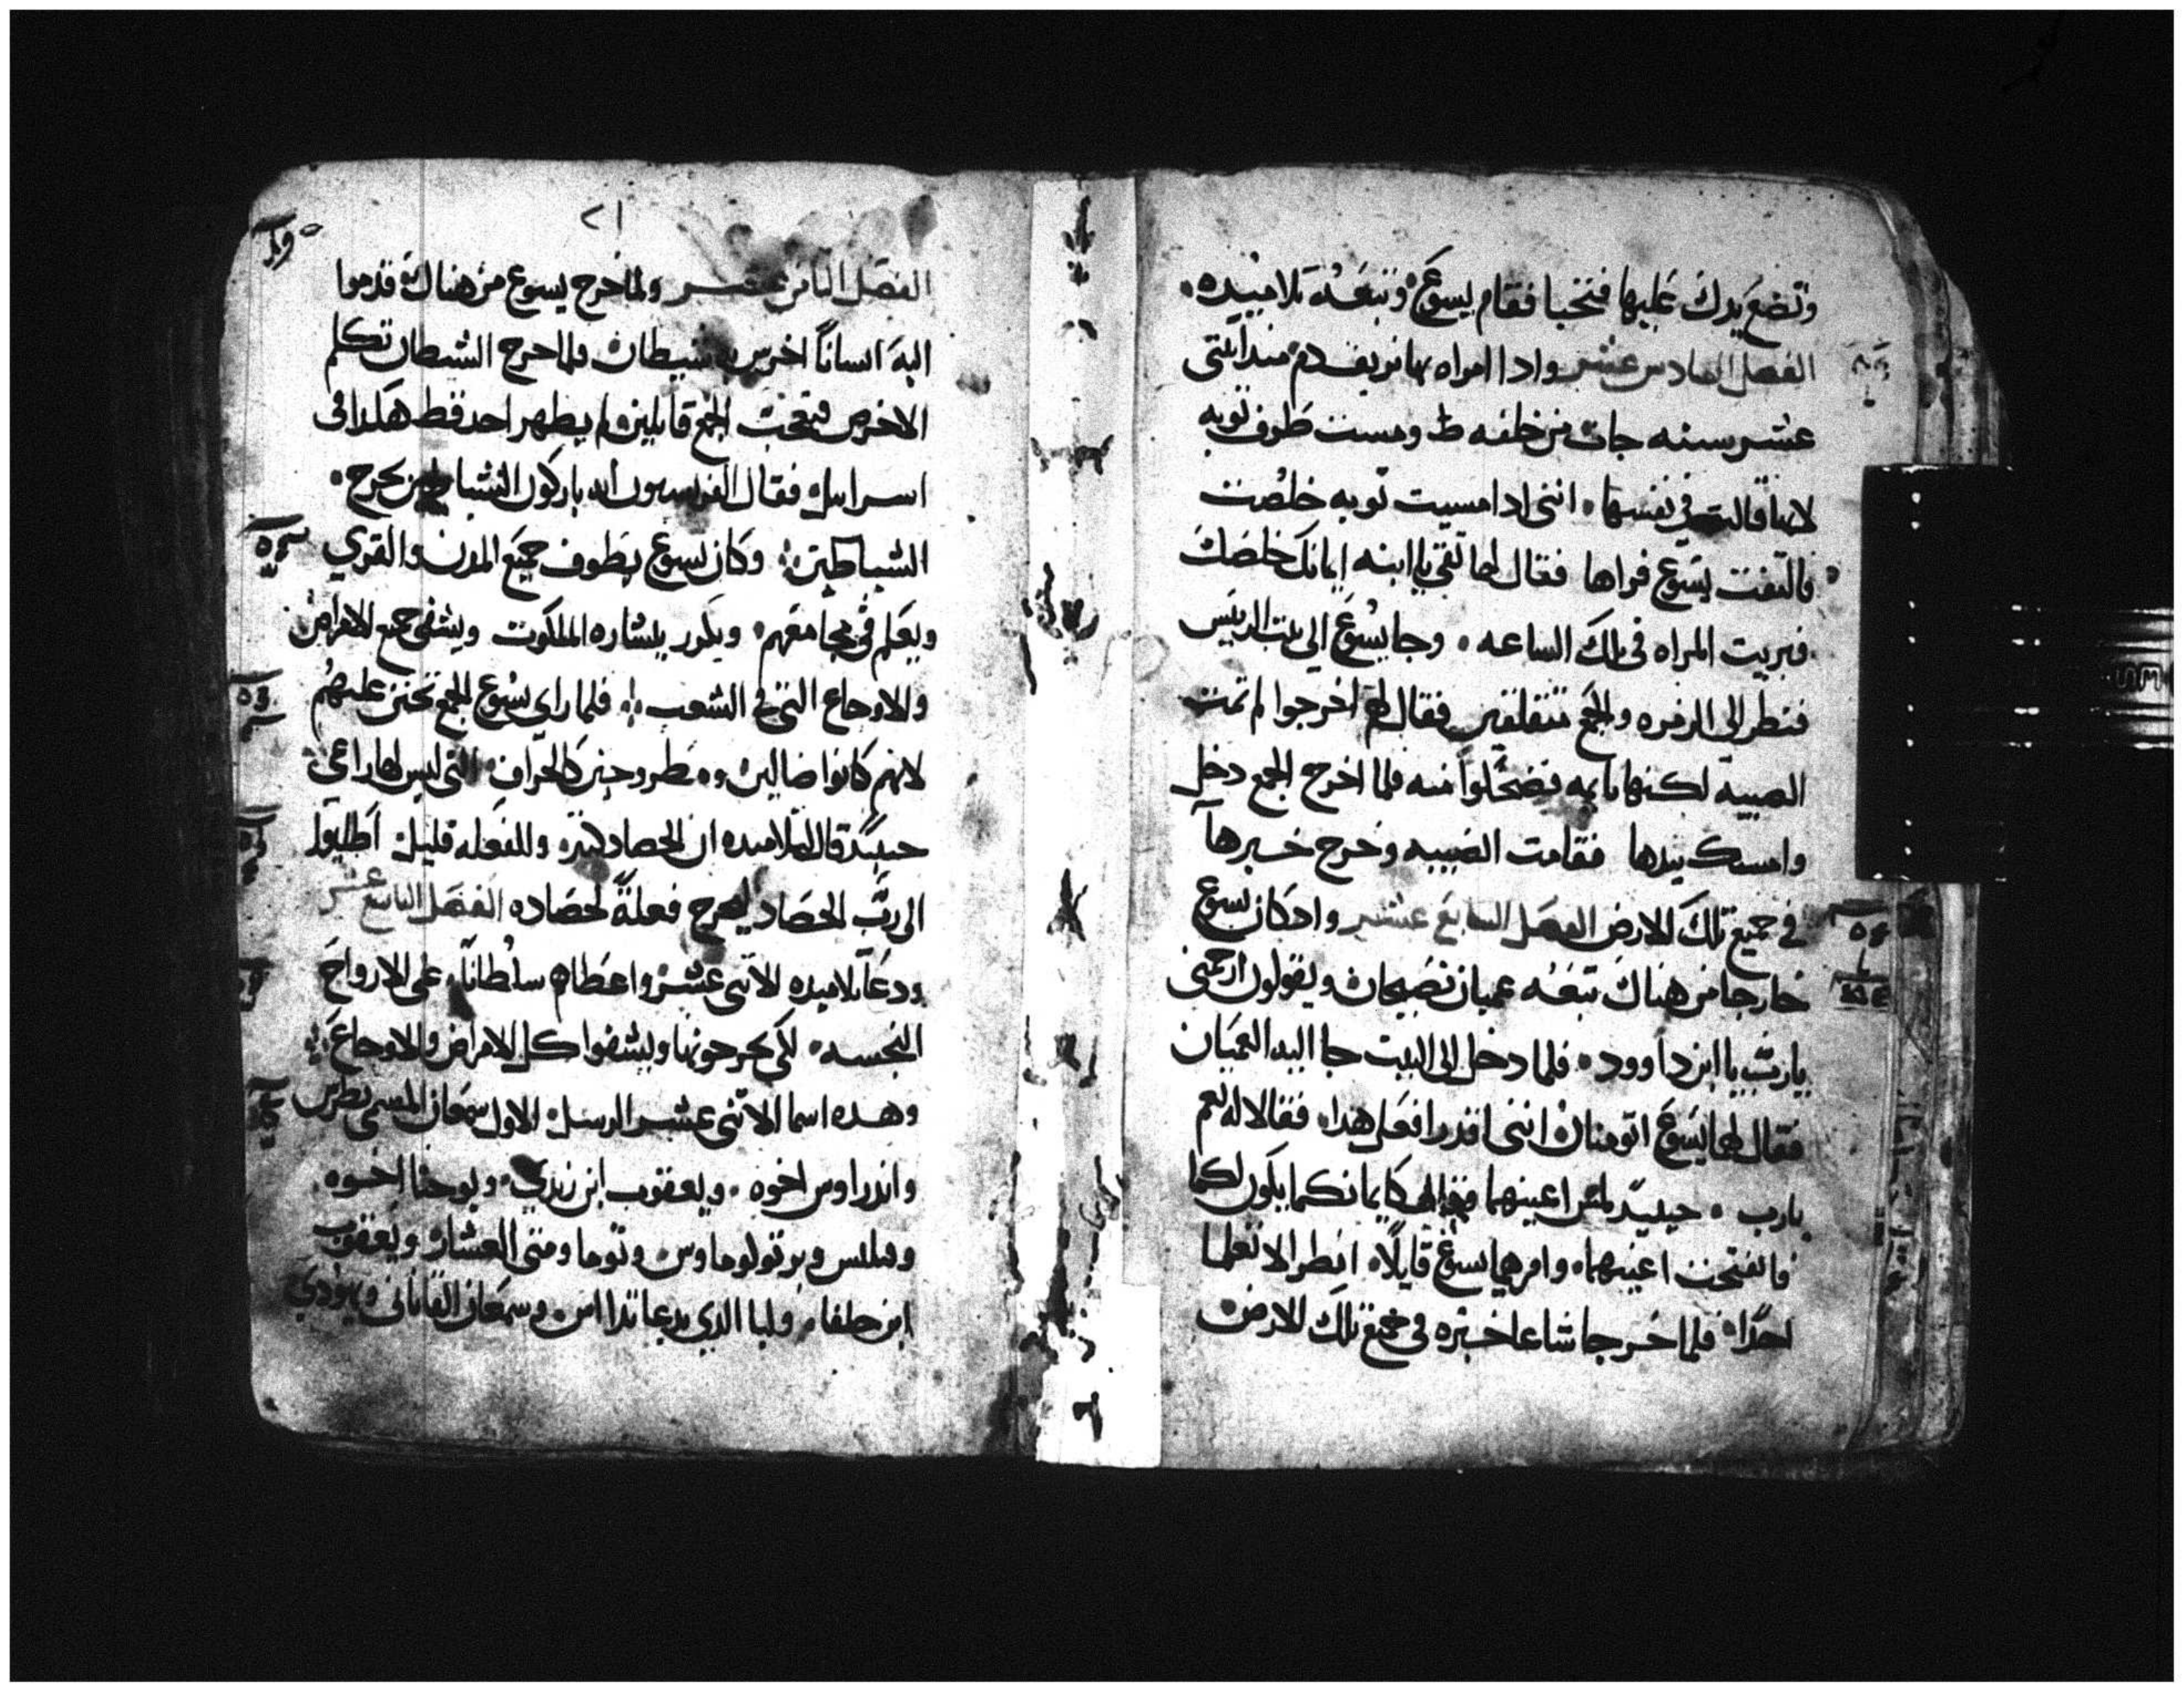 وتضع يدك عليها فتحيا فقام يسوع وتبعه تلاميده
الفصل السادس عشر وادا امراه بها نزيف دم مند اثنتى
عشر سنه جات من خلفه ومست طرف توبه
لانها قالت في نفسها اننى ادا مسيت توبه خلصت
فالتفت يسوع فراها فقال لها تقى يا ابنه ايمانك خلصك
فبريت المراه فى تلك الساعه وجا يسوع الي بيت الرييس
فنطر الى الزمره والجمع متقلقين فقال لهم اخرجوا لم تمت
الصبيه لكنها نايمه فضحكوا منه فلما اخرج الجمع دخل
وامسك بيدها فقامت الصبيه وخرج خبرها
في جميع تلك الارض الفصل السابع عشر وادكان يسوع
خارجا من هناك تبعه عميان يصيحان ويقولون ارحمنى
يارب يا ابن داوود فلما دخل الى البيت جا اليه العميان
فقال لهما يسوع اتومنان اننى اقدر افعل هدا فقالا له نعم
يارب حينيد لمس اعينهما كايمانكما يكون لكما
فانفتحت اعينهما وامرهما يسوع قايلا انطرا لا تعلما
احدا فلما خرجا شاعا خبره في جميع تلك الارض
الفصل الثامن عشر ولما خرج يسوع من هناك قدموا
اليه انسانا اخرس به شيطان فلما خرج الشيطان تكلم
الاخرس فتعجب الجمع قايلين لم يطهر احد قط هكدا فى
اسراييل فقال الفريسيون انه باركون الشياطين يخرج
الشياطين وكان يسوع يطوف جميع المدن والقري
ويعلم في مجامعهم ويكرز ببشاره الملكوت ويشفى جميع الامراض
والاوجاع التى في الشعب فلما راي يسوع الجمع تحنن عليهم
لانهم كانوا ضالين ومطروحين كالخراف التى ليس لها راعى
حينيد قال لتلاميده ان الحصاد كثير والفعله قليل اطلبوا
الى رب الحصاد ليخرج فعلة لحصاده الفصل التاسع عشر
ودعا تلاميده الاتنى عشر واعطاهم سلطانا على الارواح
النجسه لكى يخرجونها ويشفوا كل الامراض والاوجاع
وهده اسما الاتنى عشر الرسل الاول سمعان المسمى بطرس
واندراوس اخوه ويعقوب ابن زبدي ويوحنا اخوه
وفيلبس وبرتولوماوس وتوما ومتى العشار ويعقوب
ابن حلفا ولبا الدي يدعا تدااس وسمعان القانانى ويهودي